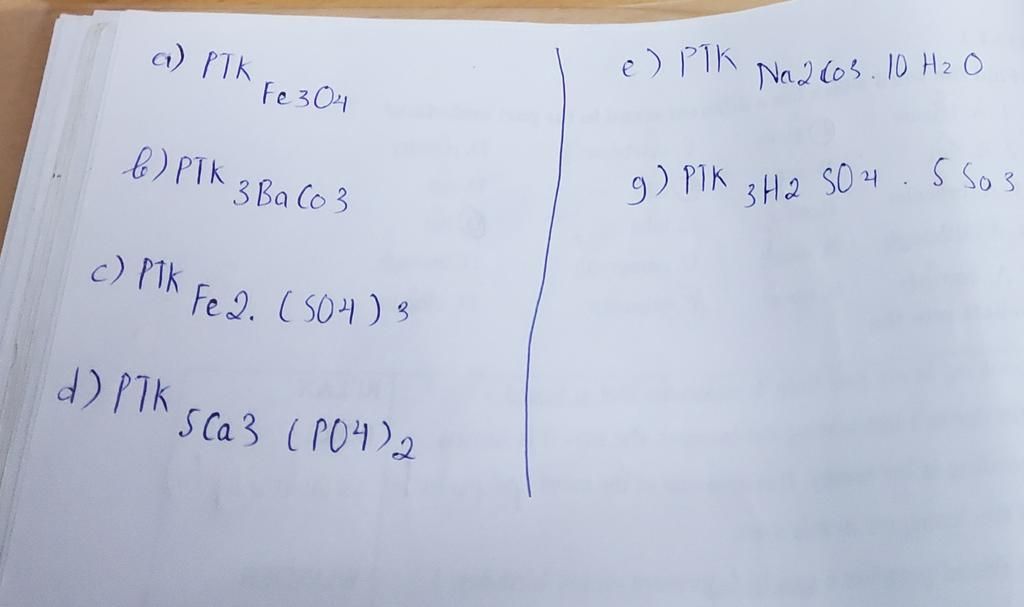 a) PTK Fe3O4
b) PTK 3BaCo3
c) PTK Fe2. (SO4)3
d) PTK 5Ca3 (PO4)2
e) PTK Na2Co3. 10 H2O
g) PTK 3H2 SO4 . 5 So3